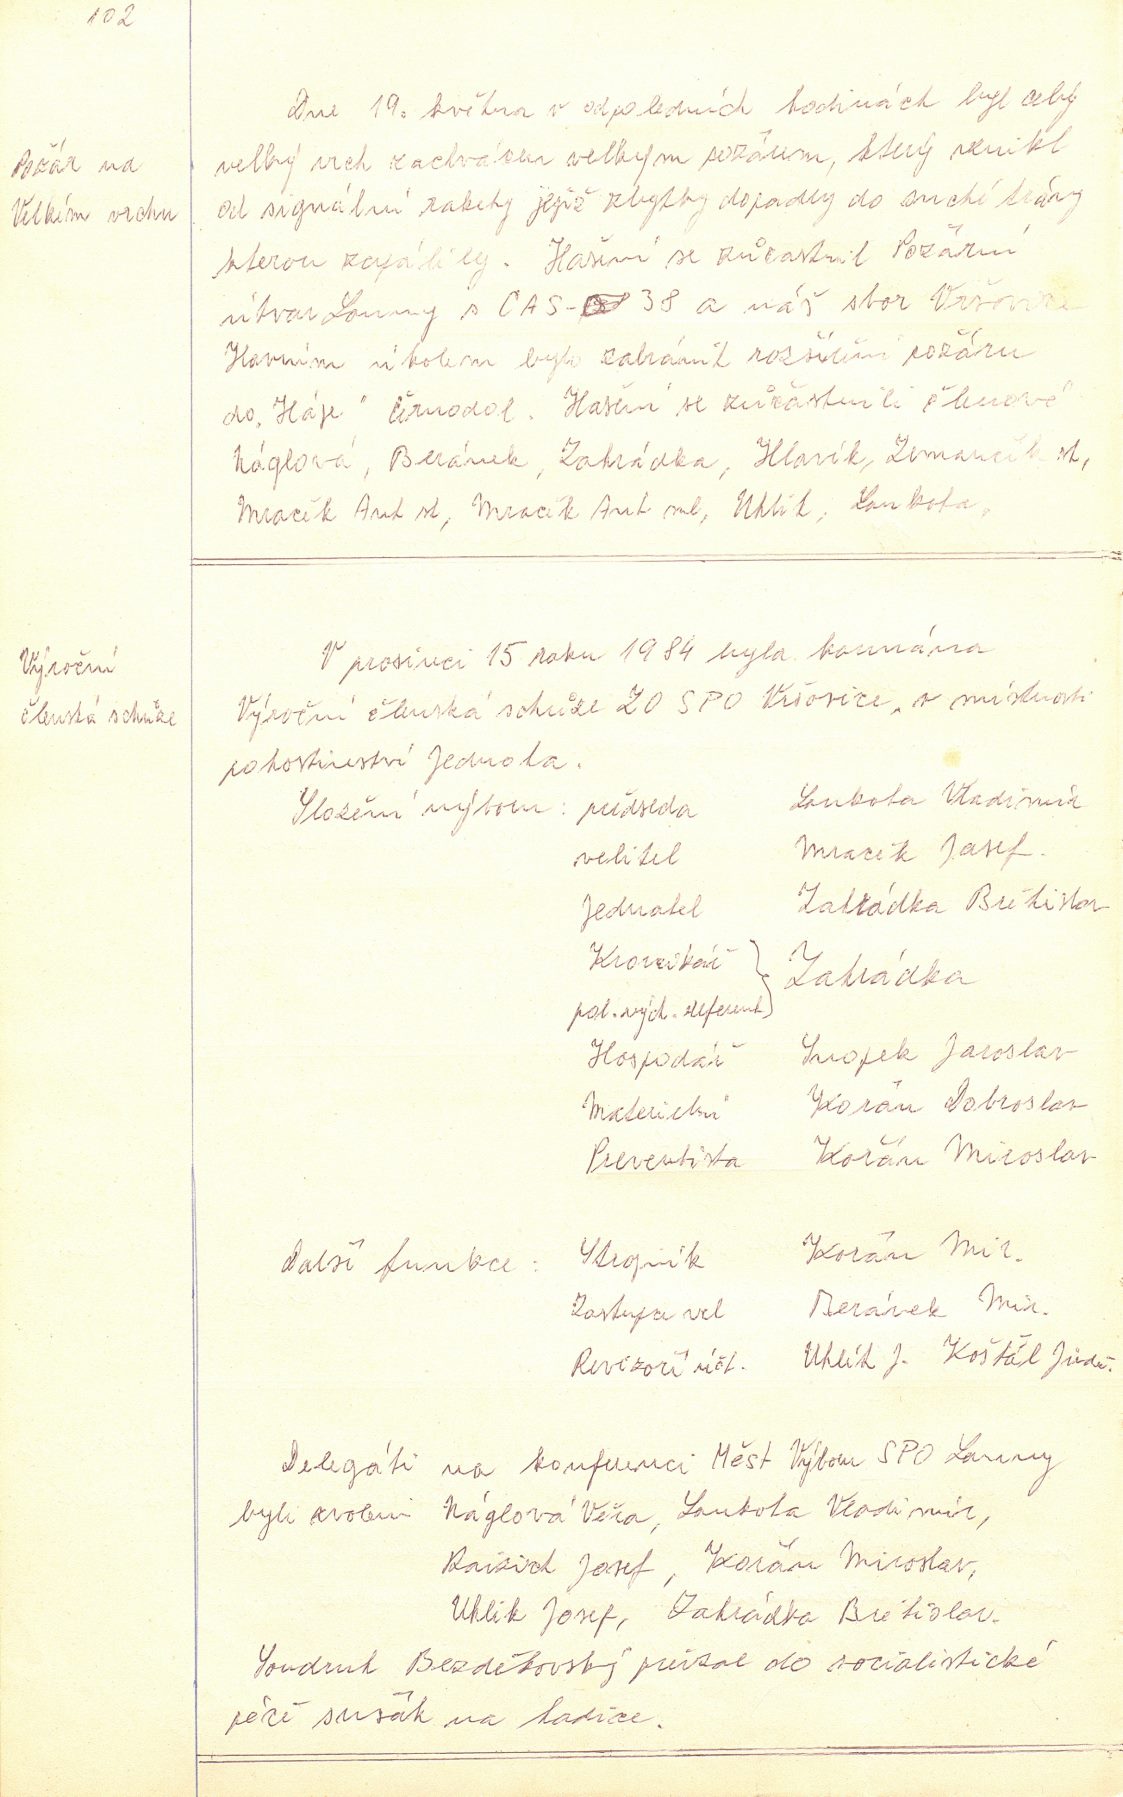 102
Požár na
Velkém vrchu
Dne 19. května v odpoledních hodinách byl celý
velký vrch zachvácen velkým požárem, který vznikl
od signální rakety jejíž zbytky dopadly do suché trávy
kterou zapálily. Hašení se zůčastnil Požární
útvar Louny s CAS- 38 a náš sbor Vršovice
Hlavním úkolem bylo zabránit rozšíření požáru
do „Háje" Černodol. Hašení se zůčastnili členové
Náglová, Beránek, Zahrádka, Hlavík, Zemančík st,
Mracík Ant st, Mracík Ant ml, Uhlík, Loukota,
Výroční
členská schůze
V prosinci 15 roku 1984 byla konnána
Výroční členská schůze ZO SPO Vršovice, v místnosti
pohostinství Jednota.
Složení výboru: předseda Loukota Vladimír
velitel Mracík Josef.
Jednatel Zahrádka Břetislav
Kronikář } Zahrádka
pol. vých. referent
Hospodář Snopek Jaroslav
Materielní Kořán Dobroslav
Preventista Kořán Miroslav
Další funkce: Strojník Kořán Mir.
Zástupce vel Beránek Mir.
Revizoři účt. Uhlík J. Koštál Jindř.
Delegáti na konferenci Měst Výboru SPO Louny
byli zvoleni Náglová Věra, Loukota Vladimír,
Josef, Kořán Miroslav,
Uhlík Josef, Zahrádka Břetislav.
Soudruh Bezděkovský převzal do socialistické
péče sušák na hadice.